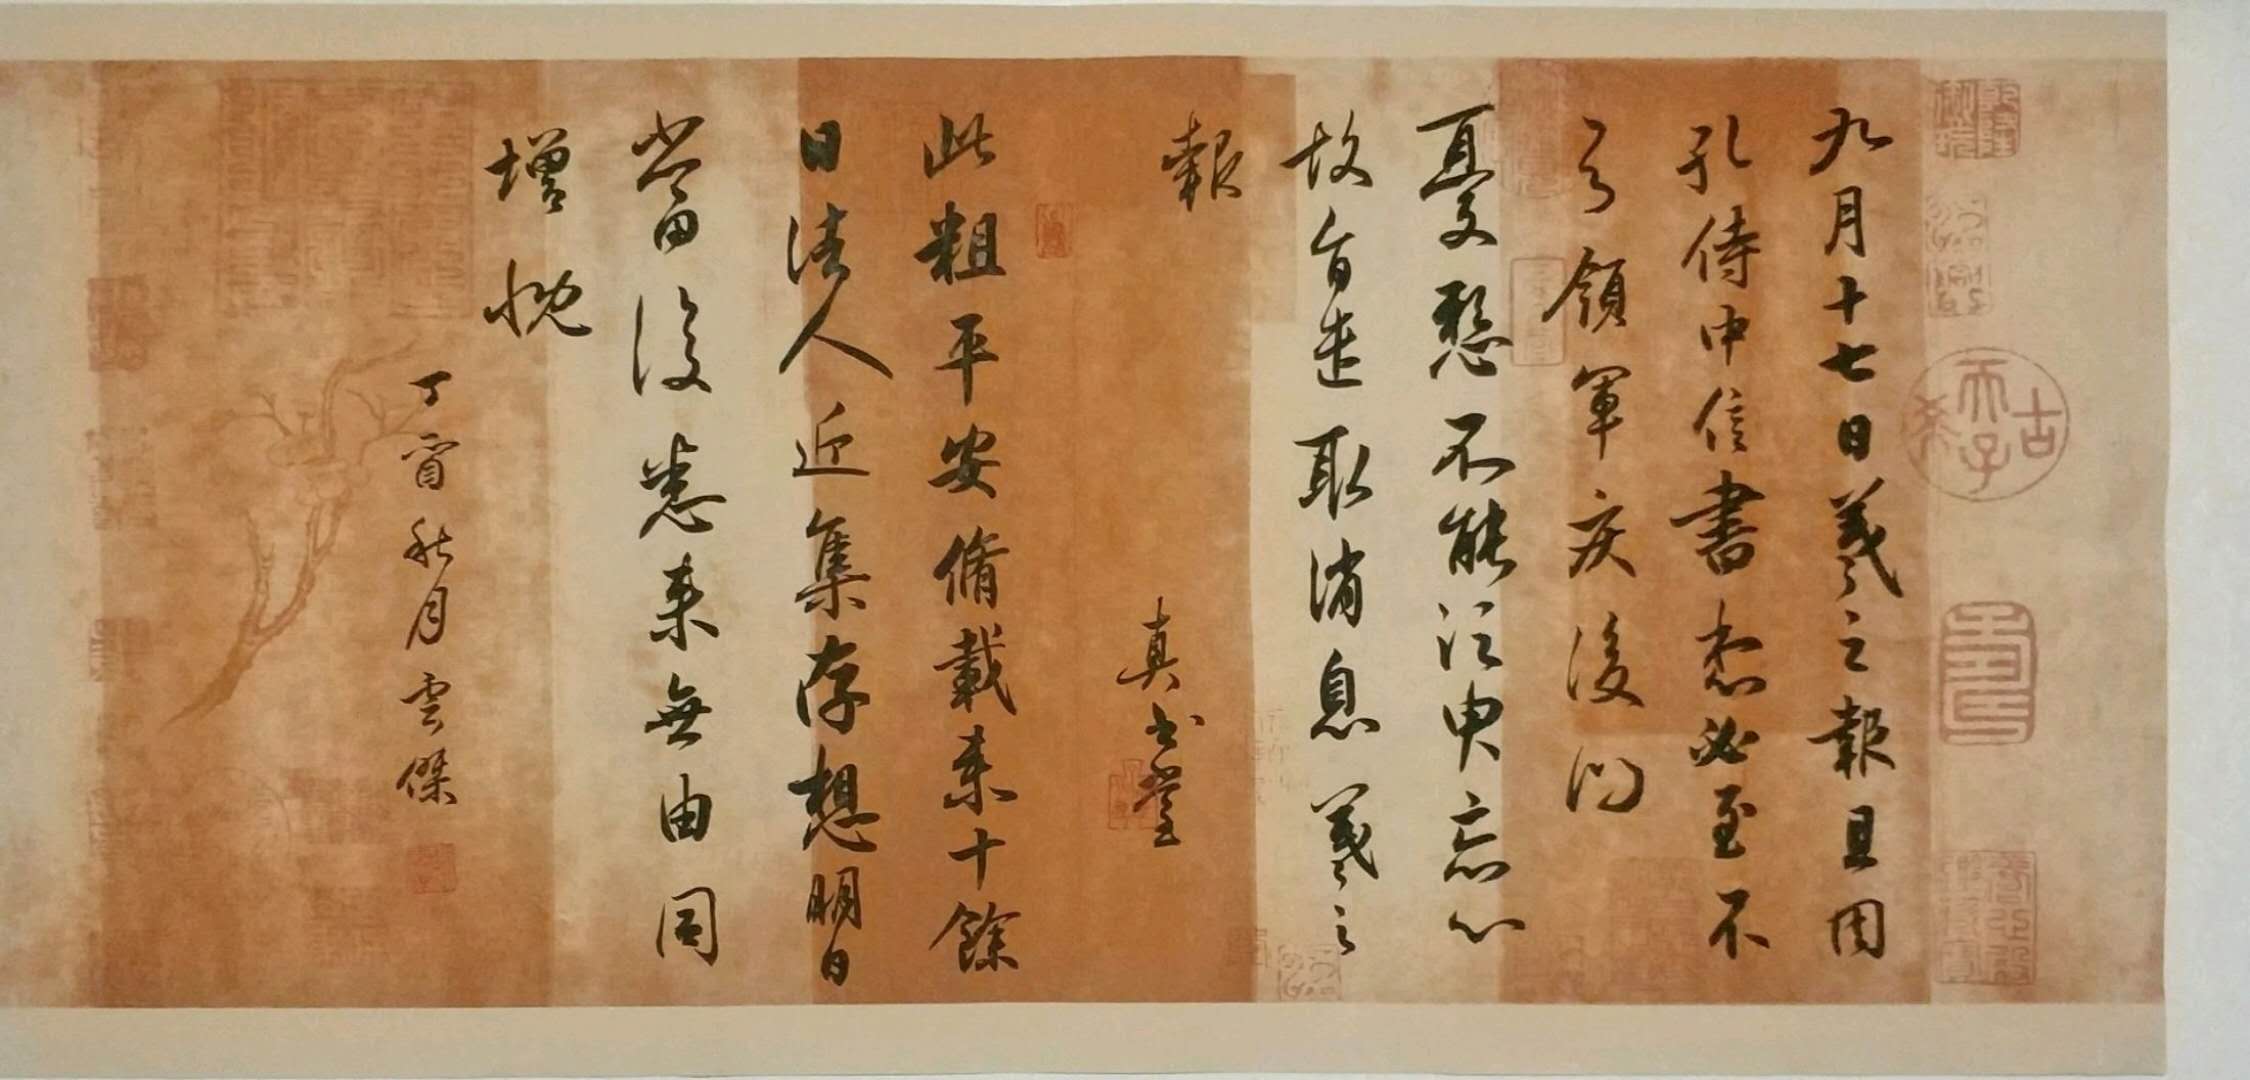 九月十七日羲之報且因
孔侍中信書想必至不
知領軍疾後問
憂懸不能須臾忘心
故旨遣取消息羲之
報
真書堂
此粗平安脩載来十餘
日諸人近集存想明日
當復悉来無由同
增慨
丁酉秋月雲傑
古希天子